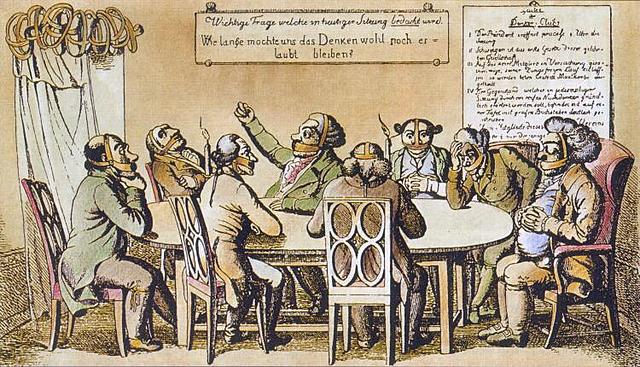 Wichtige Frage welche in heutiger Sitzung bedacht wird.
Wie lange mochte uns das Denken wohl noch er=
laubt bleiben?
Denker-Clubs
I Der Präsident eröffnet 8 Uhr die
Sitzung
II Schweigen ist das erste Gesetz dieser gelehr=
ten Gesellschaft
III Auf das kein Mitglied in Versuchung
seiner Zunge freyen Lauf zu
so werden beim Maulkörbe
IV Der Gegenstand welcher in jedesmaliger
Sitzung durch ein reifes Nachdenken
werden soll, befindet sich auf ei=
ner Tafel mit großen Buchstaben deutlich